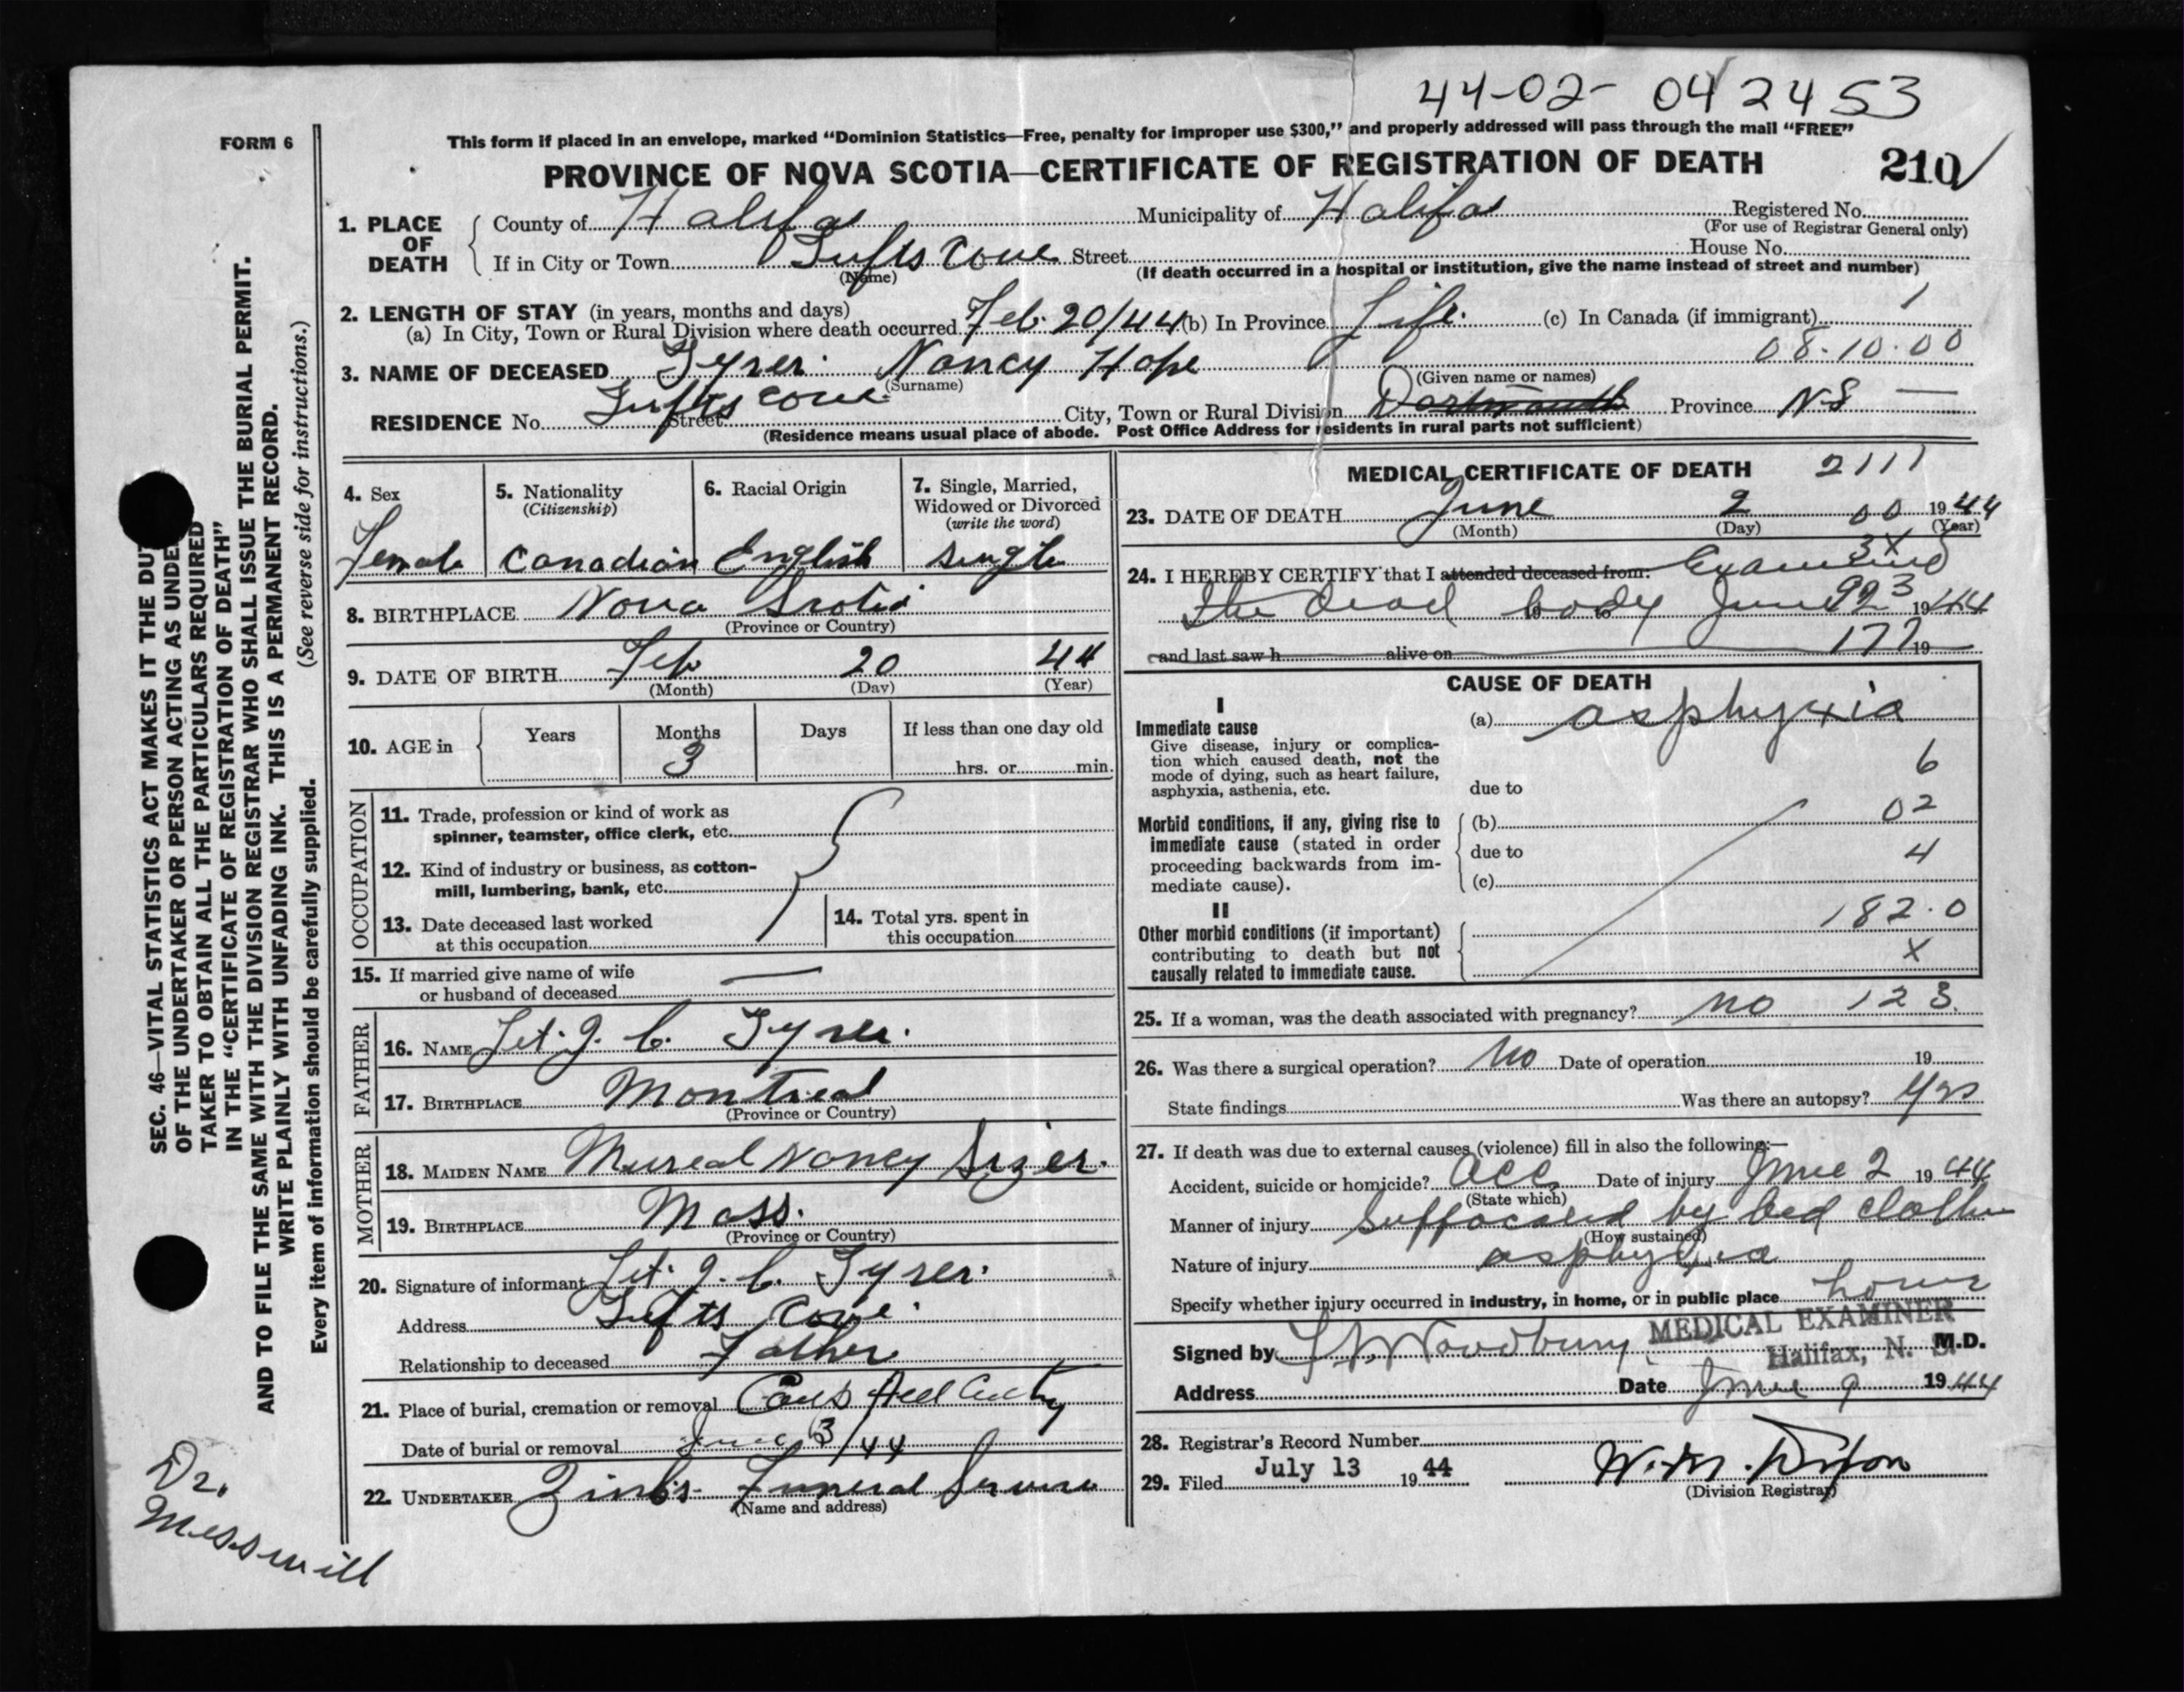 44-02- 042453
FORM 6
This form if placed in an envelope, marked “Dominion Statistics—Free, penalty for improper use $300,” and properly addressed will pass through the mail “FREE”
PROVINCE OF NOVA SCOTIA—CERTIFICATE OF REGISTRATION OF DEATH 210
1. PLACE OF DEATH
County of Halifax Municipality of Halifax Registered No.
(For use of Registrar General only)
If in City or Town Tufts Cove Street House No.
(Name) (If death occurred in a hospital or institution, give the name instead of street and number)
2. LENGTH OF STAY (in years, months and days)
(a) In City, Town or Rural Division where death occurred Feb. 20/44 (b) In Province Life. (c) In Canada (if immigrant) 1
08-10-00
3. NAME OF DECEASED Tyrer Nancy Hope
(Surname) (Given name or names)
RESIDENCE No. Tufts Cove Street City, Town or Rural Division Dartmouth Province N-S —
(Residence means usual place of abode. Post Office Address for residents in rural parts not sufficient)
4. Sex
Female
5. Nationality
(Citizenship)
Canadian
6. Racial Origin
English
7. Single, Married,
Widowed or Divorced
(write the word)
single
8. BIRTHPLACE Nova Scotia
(Province or Country)
9. DATE OF BIRTH Feb 20 44
(Month) (Day) (Year)
10. AGE in Years Months Days If less than one day old
3 hrs. or min.
OCCUPATION
11. Trade, profession or kind of work as
spinner, teamster, office clerk, etc.
12. Kind of industry or business, as cotton-
mill, lumbering, bank, etc.
13. Date deceased last worked
at this occupation
14. Total yrs. spent in
this occupation
15. If married give name of wife
or husband of deceased —
FATHER
16. NAME Lt. J. C. Tyrer.
17. BIRTHPLACE Montreal
(Province or Country)
MOTHER
18. MAIDEN NAME Mureal Nancy Sizer.
19. BIRTHPLACE Mass.
(Province or Country)
20. Signature of informant Lt. J. C. Tyrer.
Address Tufts Cove.
Relationship to deceased Father
21. Place of burial, cremation or removal
Date of burial or removal June 3/44
22. UNDERTAKER Zink's Funeral Service
(Name and address)
MEDICAL CERTIFICATE OF DEATH 2111
23. DATE OF DEATH June 2 00 1944
(Month) (Day) (Year)
3X
24. I HEREBY CERTIFY that I attended deceased from: Examined
the dead body June 1944
and last saw h alive on 177 19
CAUSE OF DEATH
I
Immediate cause
Give disease, injury or complica-
tion which caused death, not the
mode of dying, such as heart failure,
asphyxia, asthenia, etc.
(a) asphyxia
6
due to
Morbid conditions, if any, giving rise to
immediate cause (stated in order
proceeding backwards from im-
mediate cause).
(b) 02
due to 4
(c)
II
Other morbid conditions (if important)
contributing to death but not
causally related to immediate cause.
182.0
X
25. If a woman, was the death associated with pregnancy? no 123.
26. Was there a surgical operation? No Date of operation 19
State findings Was there an autopsy? yes
27. If death was due to external causes (violence) fill in also the following:—
Accident, suicide or homicide? acc. Date of injury June 2 1944
(State which)
Manner of injury Suffocated by bed clothes
(How sustained)
Nature of injury asphyxia
Specify whether injury occurred in industry, in home, or in public place home
MEDICAL EXAMINER
Signed by Woodbury Halifax, N. S. M.D.
Address Date June 9 1944
28. Registrar's Record Number
29. Filed July 13 1944
(Division Registrar)
SEC. 46—VITAL STATISTICS ACT MAKES IT THE DUTY
OF THE UNDERTAKER OR PERSON ACTING AS UNDER
TAKER TO OBTAIN ALL THE PARTICULARS REQUIRED
IN THE “CERTIFICATE OF REGISTRATION OF DEATH”
AND TO FILE THE SAME WITH THE DIVISION REGISTRAR WHO SHALL ISSUE THE BURIAL PERMIT.
WRITE PLAINLY WITH UNFADING INK. THIS IS A PERMANENT RECORD.
Every item of information should be carefully supplied. (See reverse side for instructions.)
Dr.